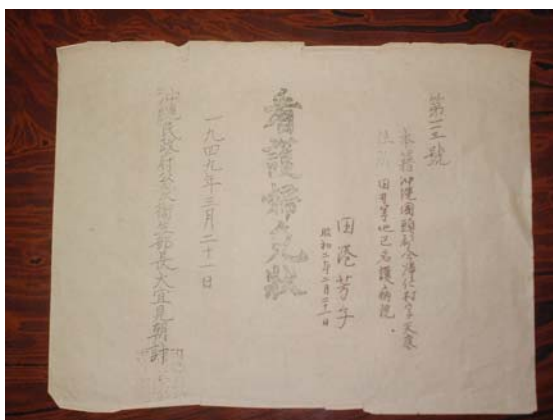 第一三號
本籍沖縄國頭郡今帰仁村字天底
住所 田井等地区名護病院
田港芳子
昭和二年二月二十一日
看護婦免状
一九四九年三月二十一日
沖縄民政府公衆衛生部長大宜見朝計